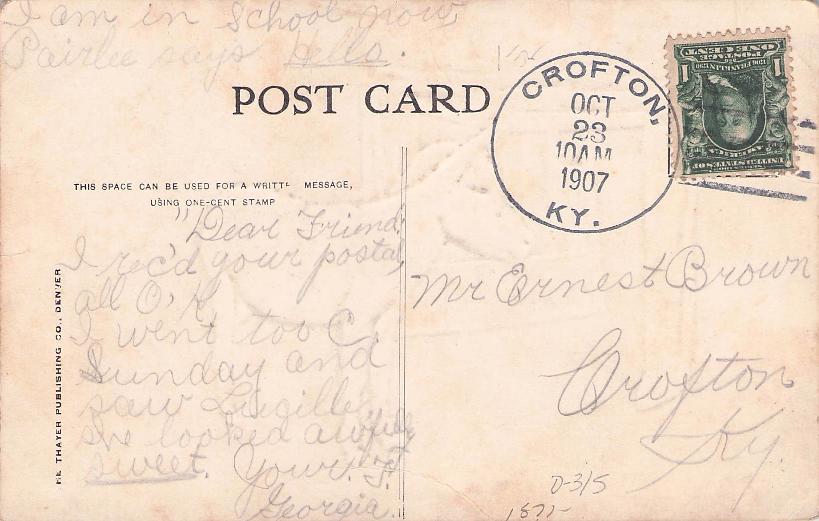 I am in school now
Pairlee says Hello.
POST CARD
CROFTON,
OCT
23
10AM
1907
KY.
POSTAGE
ONE CENT
1 1
UNITED STATES OF
AMERICA
THIS SPACE CAN BE USED FOR A WRITTE MESSAGE,
USING ONE-CENT STAMP
"Dear Friend:
I rec'd your postal,
all O.K.
I went too C.
Sunday and
saw Lucille,
she looked awfully
sweet. Your. F.
Georgia.
Mr Ernest Brown
Crofton
Ky.
HE THAYER PUBLISHING CO., DENVER
D-3/5